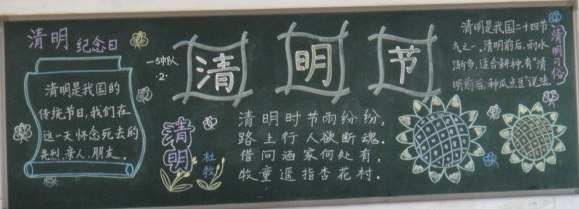 清明 纪念日
清明是我国的
传统节日,我们在
这一天怀念死去的
先烈、亲人、朋友。
一中队
·2·
清明节
清明
杜牧
清明时节雨纷纷,
路上行人欲断魂.
借问酒家何处有,
牧童遥指杏花村.
清明是我国二十四节
气之一,清明前后,雨水
渐多,适合耕种,有"清
明前后,种瓜点豆"说法
清明习俗